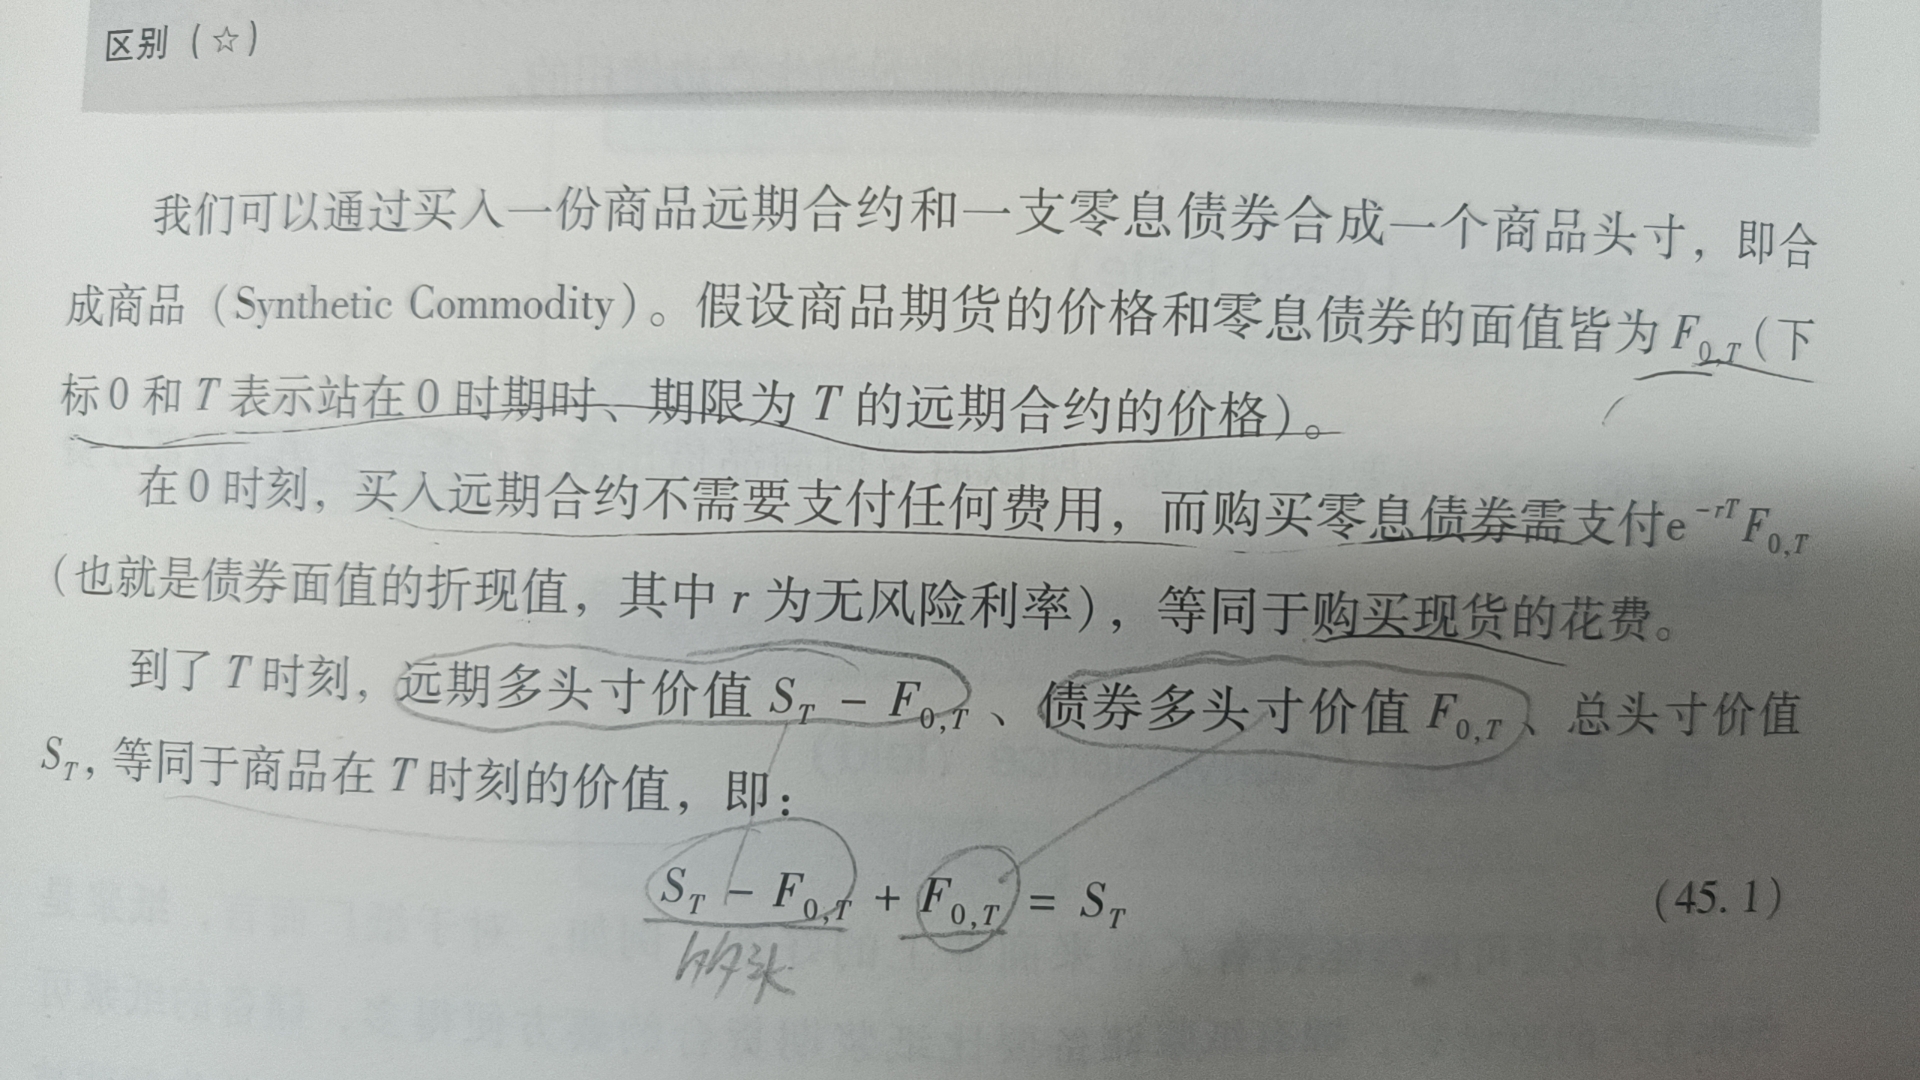 区别（☆）
我们可以通过买入一份商品远期合约和一支零息债券合成一个商品头寸，即合
成商品（Synthetic Commodity）。假设商品期货的价格和零息债券的面值皆为 F0,T（下
标0 和 T 表示站在 0 时期时、期限为 T 的远期合约的价格）。
在 0 时刻，买入远期合约不需要支付任何费用，而购买零息债券需支付e^-rT F0,T
（也就是债券面值的折现值，其中 r 为无风险利率），等同于购买现货的花费。
到了 T 时刻，远期多头寸价值 ST - F0,T、债券多头寸价值 F0,T、总头寸价值
ST，等同于商品在 T 时刻的价值，即：
ST - F0,T + F0,T = ST (45.1)